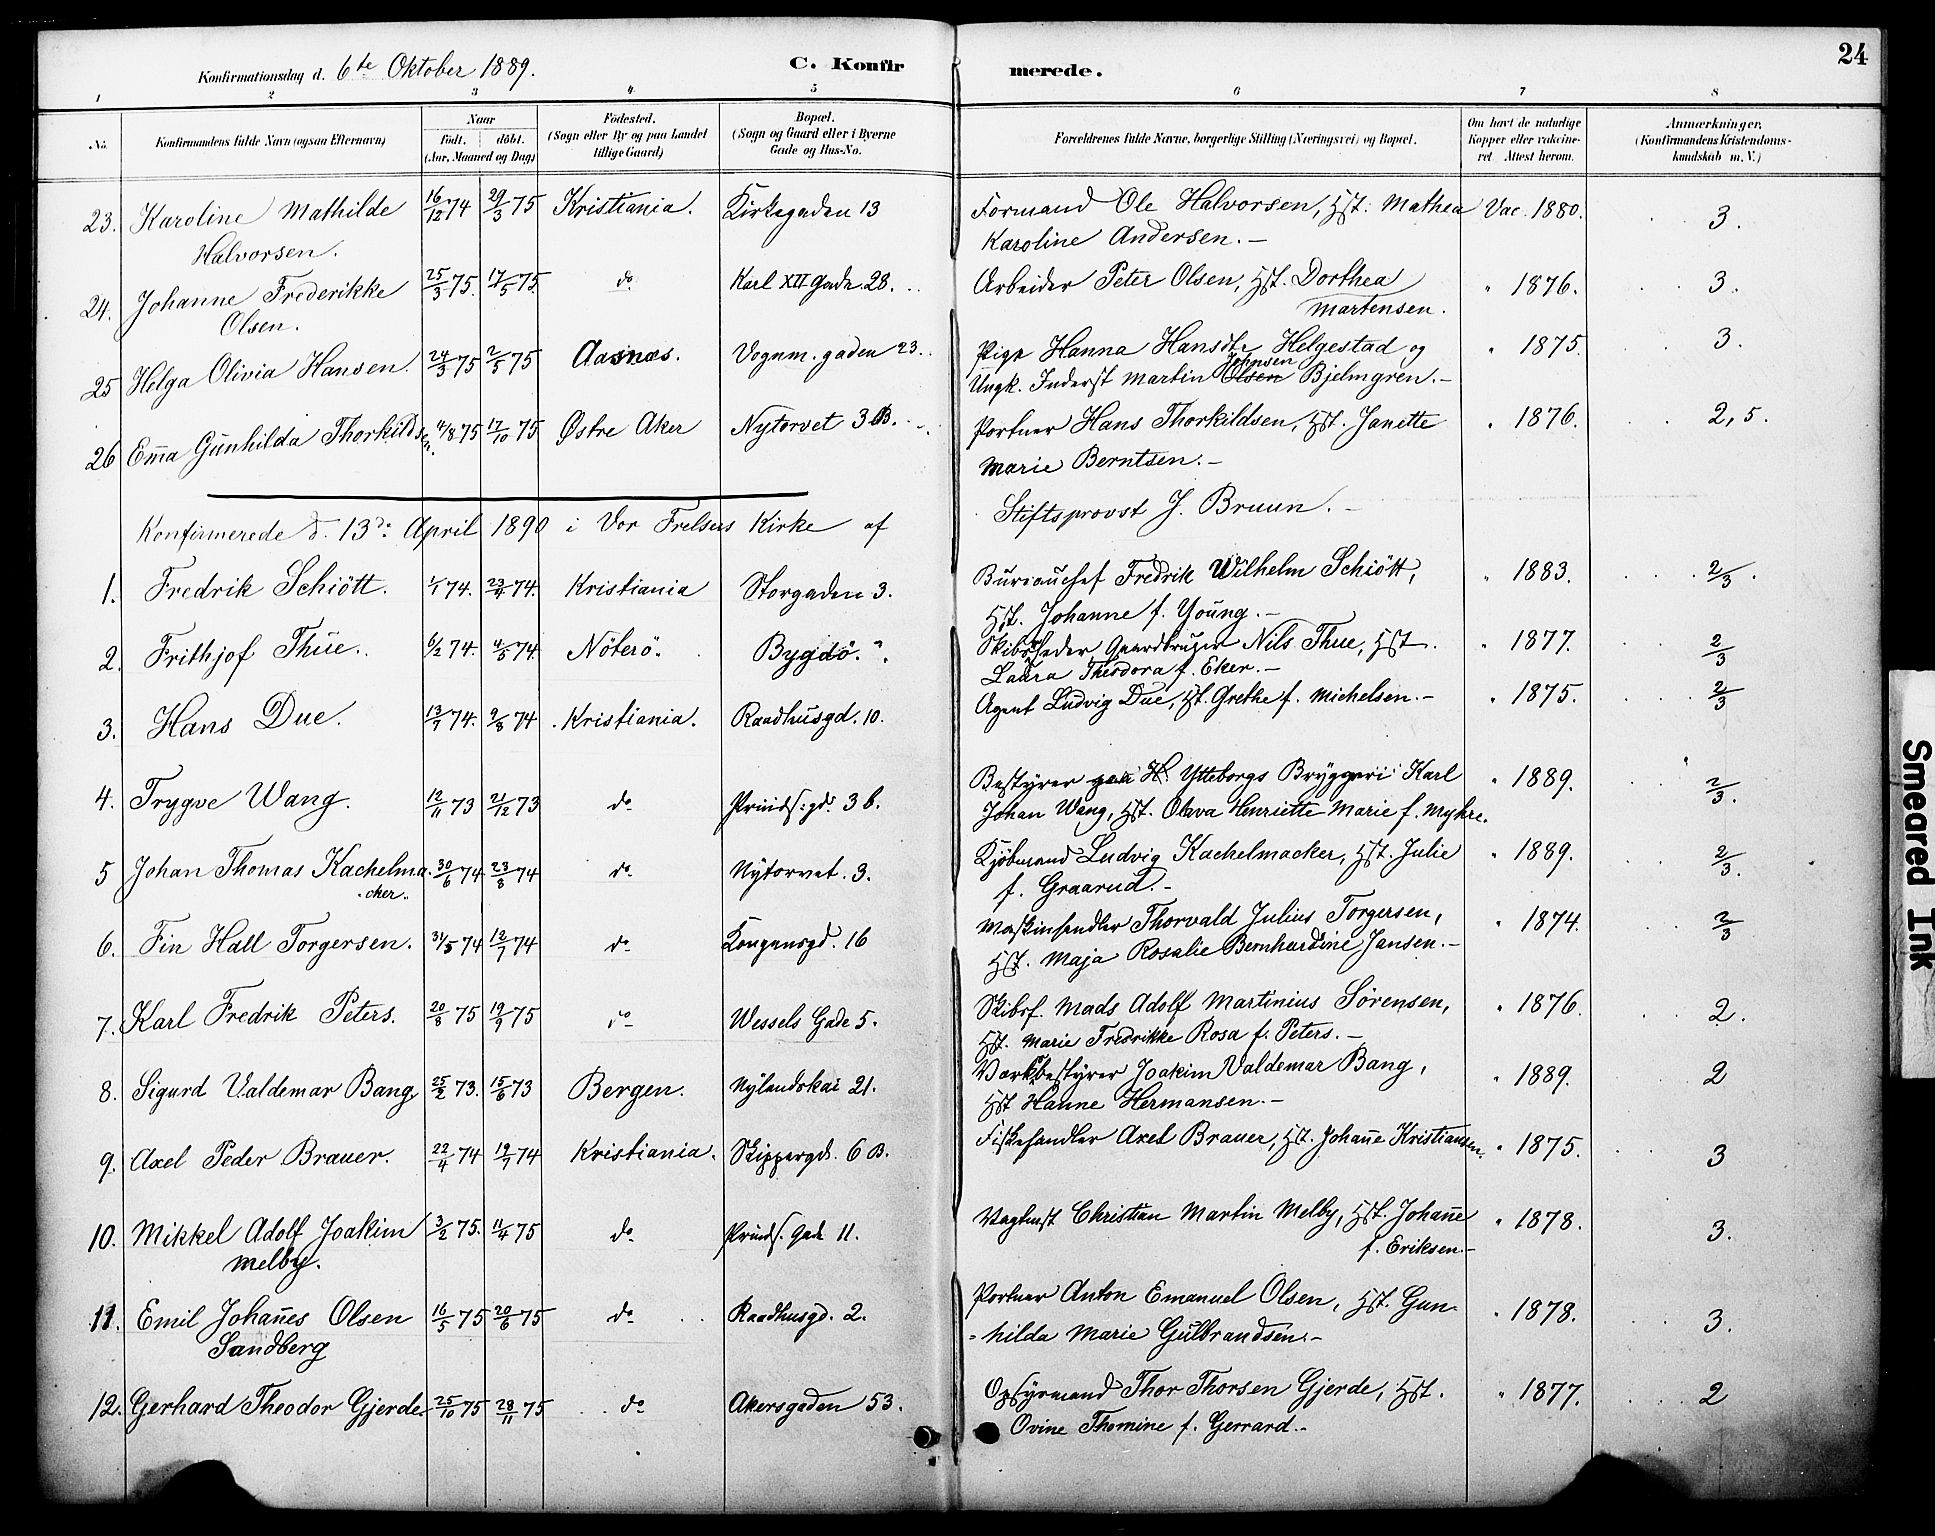 24
Konfirmationsdag d. 6te Oktober 1889. C. Konfirmerede.
1 2 3 4 5 6 7 8
No. Konfirmandens fulde Navn (ogsaa Efternavn) Naar födt. döbt. (Aar, Maaned og Dag) Födested. (Sogn eller By og paa Landet tillige Gaard) Bopæl. (Sogn og Gaard eller i Byerne Gade og Hus-No. Forældrenes fulde Navne, borgerlige Stilling (Næringsvei) og Bopæl. Om havt de naturlige Kopper eller vakcineret. Attest herom. Anmærkninger, (Konfirmandens Kristendomskundskab m. V.)
23. Karoline Mathilde 16/12 74 29/3 75 Kristiania. Kirkegaden 13 Formand Ole Halvorsen, Hst. Mathea Vac. 1880. 3.
Halvorsen. Karoline Andersen. —
24. Johanne Frederikke 25/3 75. 17/5 75. do Karl XII Gade 28. Arbeider Peter Olsen, Hst. Dorthea " 1876. 3.
Olsen. Martensen.
25 Helga Olivia Hansen. 24/3 75 2/5 75 Aasnæs. Vognm. gaden 23. Pige Hanna Hansdtr Helgestad og " 1875. 3.
Ungk. Inderst Martin Olsen Johnsen Bjelmgren. —
26 Emma Gunhilda Thorkildsen. 11/8 75 17/10 75 Østre Aker Nytorvet 3 B. Portner Hans Thorkildsen, Hst. Janette " 1876. 2,5.
Marie Berntsen. —
Konfirmerede d. 13de April 1890 i Vor Frelsers Kirke af Stiftsprovst J. Bruun. —
1. Fredrik Schiött. 1/1 74. 23/4 74. Kristiania Storgaden 3. Bureauchef Fredrik Wilhelm Schiött, " 1883. 2/3.
Hst. Johanne f. Young. —
2. Frithjof Thue. 6/2 74. 4/5 74. Nöterö. Bygdö. Skibsrheder Gaardbruger Nils Thue, Hst. " 1877. 2/3
Laura Theodora f. Eker. —
3. Hans Due. 13/7 74. 9/8 74 Kristiania. Raadhusgd. 10. Agent Ludvig Due, Hst. Grethe f. Michelsen. — " 1875. 2/3
4. Trygve Wang. 12/11 73 21/12 73 do Prinds. gd. 3 b. Bestyrer paa H. Ytteborgs Bryggeri Karl " 1889. 2/3.
Johan Wang, Hst. Olava Henriette Marie f. Myhre.
5 Johan Thomas Kachelmacker. 30/6 74 23/8 74 do Nytorvet. 3. Kjöbmand Ludvig Kachelmacker, Hst. Julie " 1889. 2/3.
f. Graarud. —
6. Fin Hall Torgersen. 31/5 74 12/7 74 do Kongensgd. 16 Maskinhandler Thorvald Julius Torgersen, " 1874. 2/3
Hst. Maja Rosalie Bernhardine Jansen. —
7. Karl Fredrik Peters. 20/8 75 19/9 75 do Wessels Gade 5. Skibsf. Mads Adolf Martinius Sörensen, " 1876. 2.
Hst. Marie Fredrikke Rosa f. Peters. —
8. Sigurd Valdemar Bang, 25/2 73. 15/6 73 Bergen. Nylandskai 21. Værksbestyrer Joakim Valdemar Bang, " 1889. 2
Hst Hanne Hermansen. —
9. Axel Peder Brauer. 22/4 74 12/7 74 Kristiania. Skippergd. 6 B. Fiskehandler Axel Brauer, Hst. Johanne Kristiansen. " 1875. 3
10. Mikkel Adolf Joakim 3/2 75. 11/4 75 do Prinds. Gade 11. Vagtmst Christian Martin Melby, Hst. Johanne " 1878. 3.
Melby. f. Eriksen. —
11. Emil Johannes Olsen 16/5 75 20/6 75 do Raadhusgd. 2. Portner Anton Emanuel Olsen, Hst. Gun- " 1878. 3.
Sandberg -hilda Marie Gulbrandsen. —
12. Gerhard Theodor Gjerde. 25/10 75 28/11 75 do Akersgaden 53. Opsynsmand Thor Thorsen Gjerde, Hst. " 1877. 2
Ovine Thomine f. Gerrard. —
Smeared Ink